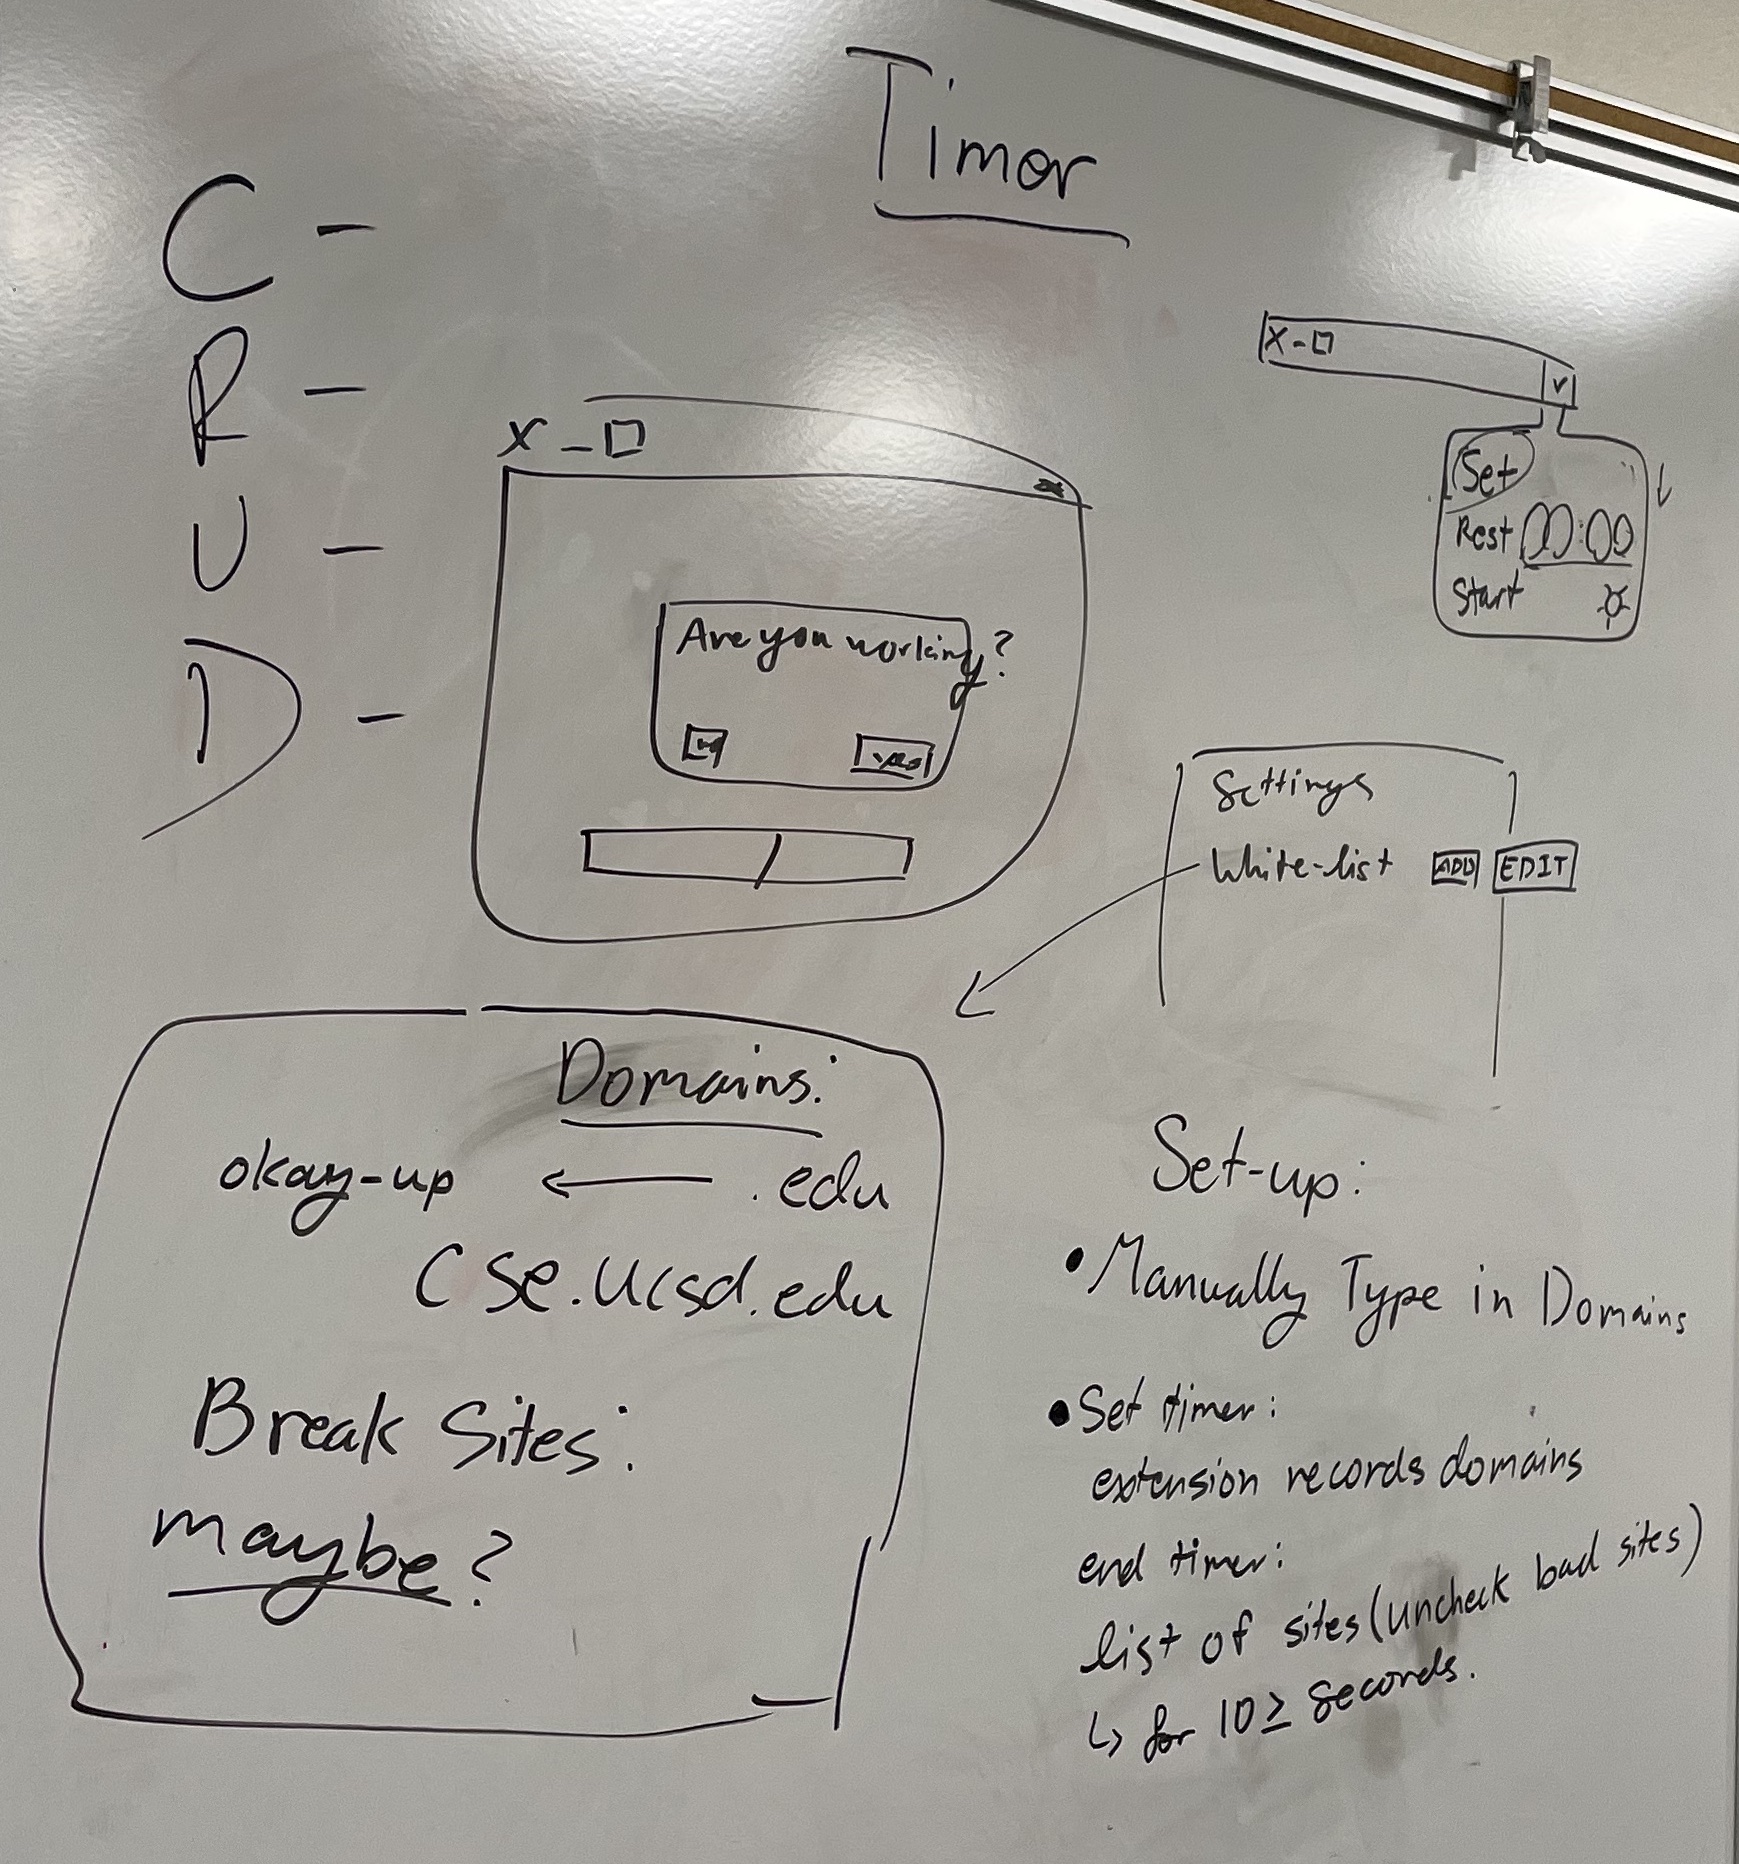 Timer
C -
R -
U -
D -
X - □
Are you working?
no yes
X - □ v
Set
Rest 00:00
Start
Settings
White-list ADD EDIT
Domains:
okay-up ← .edu
cse.ucsd.edu
Break Sites:
maybe?
Set-up:
• Manually Type in Domains
• Set timer:
extension records domains
end timer:
list of sites (uncheck bad sites)
↳ for 10 ≥ seconds.